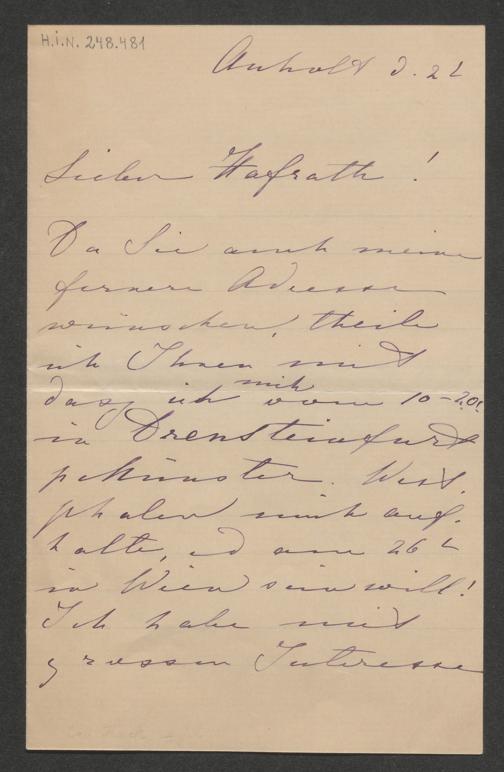 H.I.N. 248.481
Anholt d. 2t
Lieber Hofrath!
Da Sie auch meine
fernere Adresse
wünschen, theile
ich Ihnen mit
mich
dass ich vom 10–20t
in Drensteinfurt
p. Münster. West
phalen mich auf
halte, u am 26t
in Wien sein will!
Ich habe mit
grossem Interesse